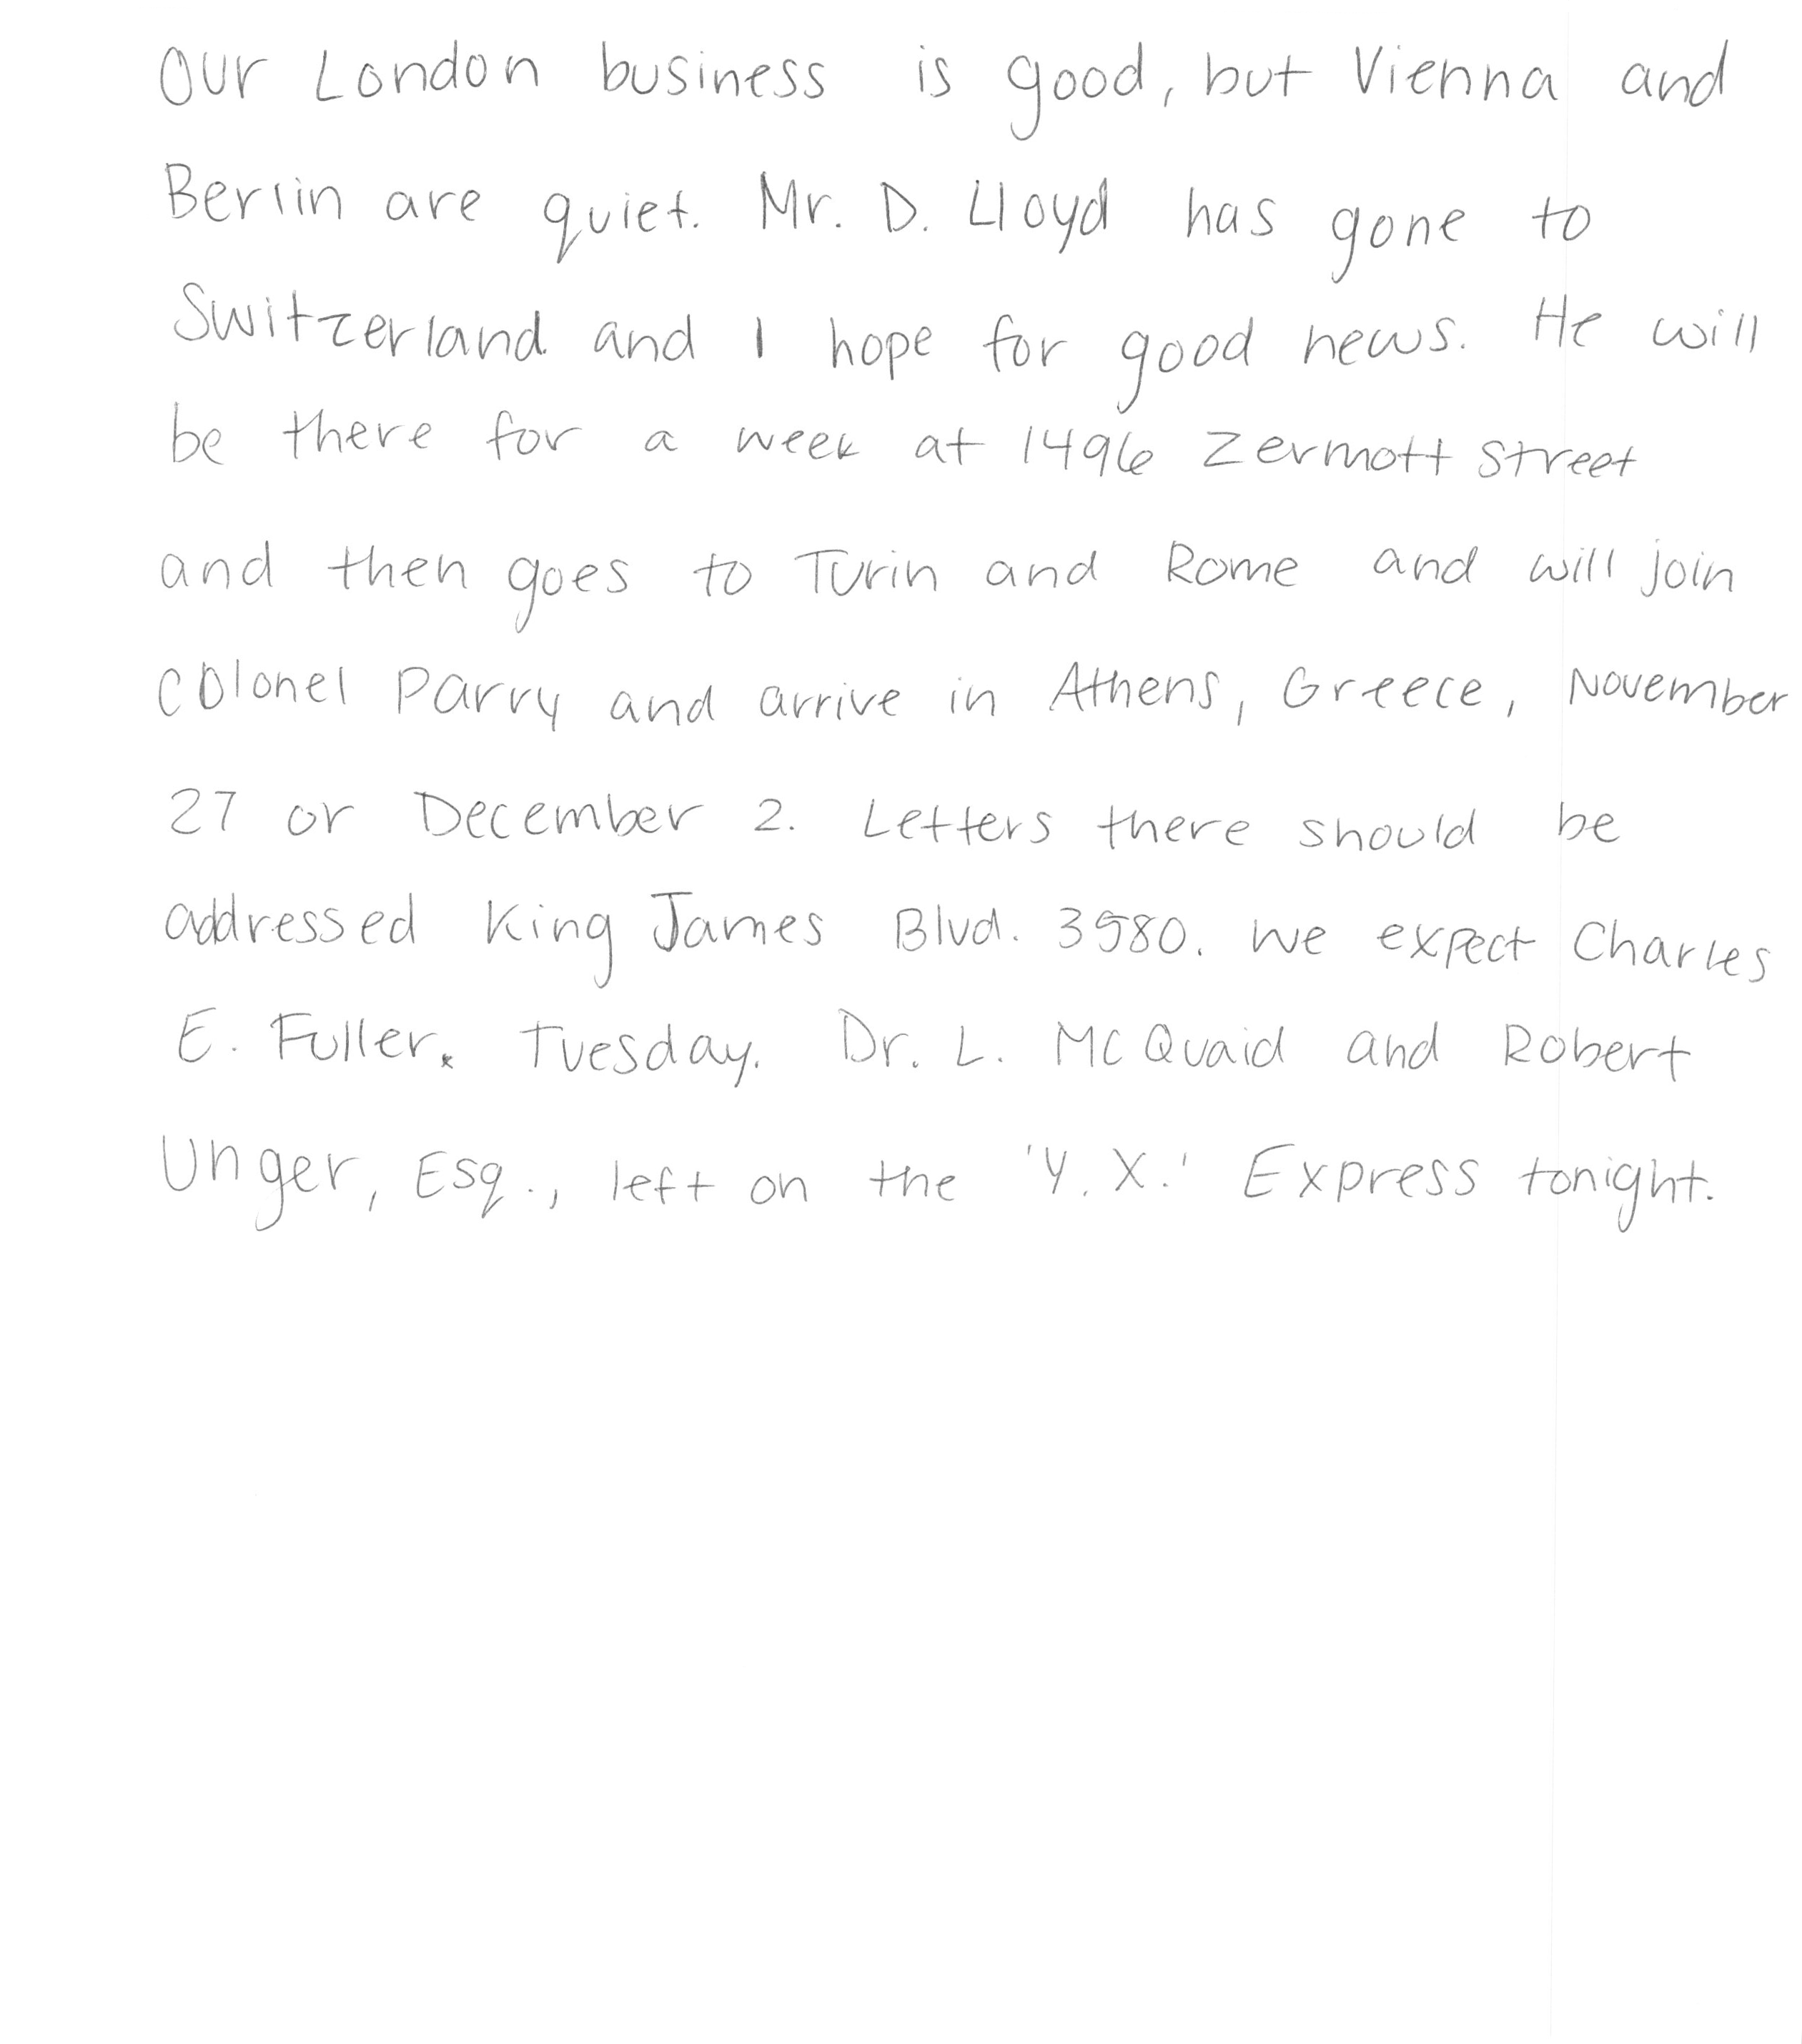 Our London business is good, but Vienna and
Berlin are quiet. Mr. D. Lloyd has gone to
Switzerland and I hope for good news. He will
be there for a week at 1496 Zermott street
and then goes to Turin and Rome and will join
Colonel Parry and arrive in Athens, Greece, November
27 or December 2. Letters there should be
addressed King James Blvd. 3580. We expect Charles
E. Fuller. Tuesday. Dr. L. McQuaid and Robert
Unger, Esq., left on the 'Y. X.' Express tonight.